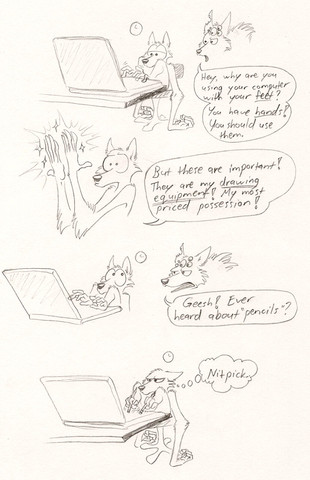 Hey, why are you
using your computer
with your feet?
You have hands!
You should use
them.
But these are important!
They are my drawing
equipment! My most
priced possession!
Geesh! Ever
heard about "pencils"?
Nitpick.